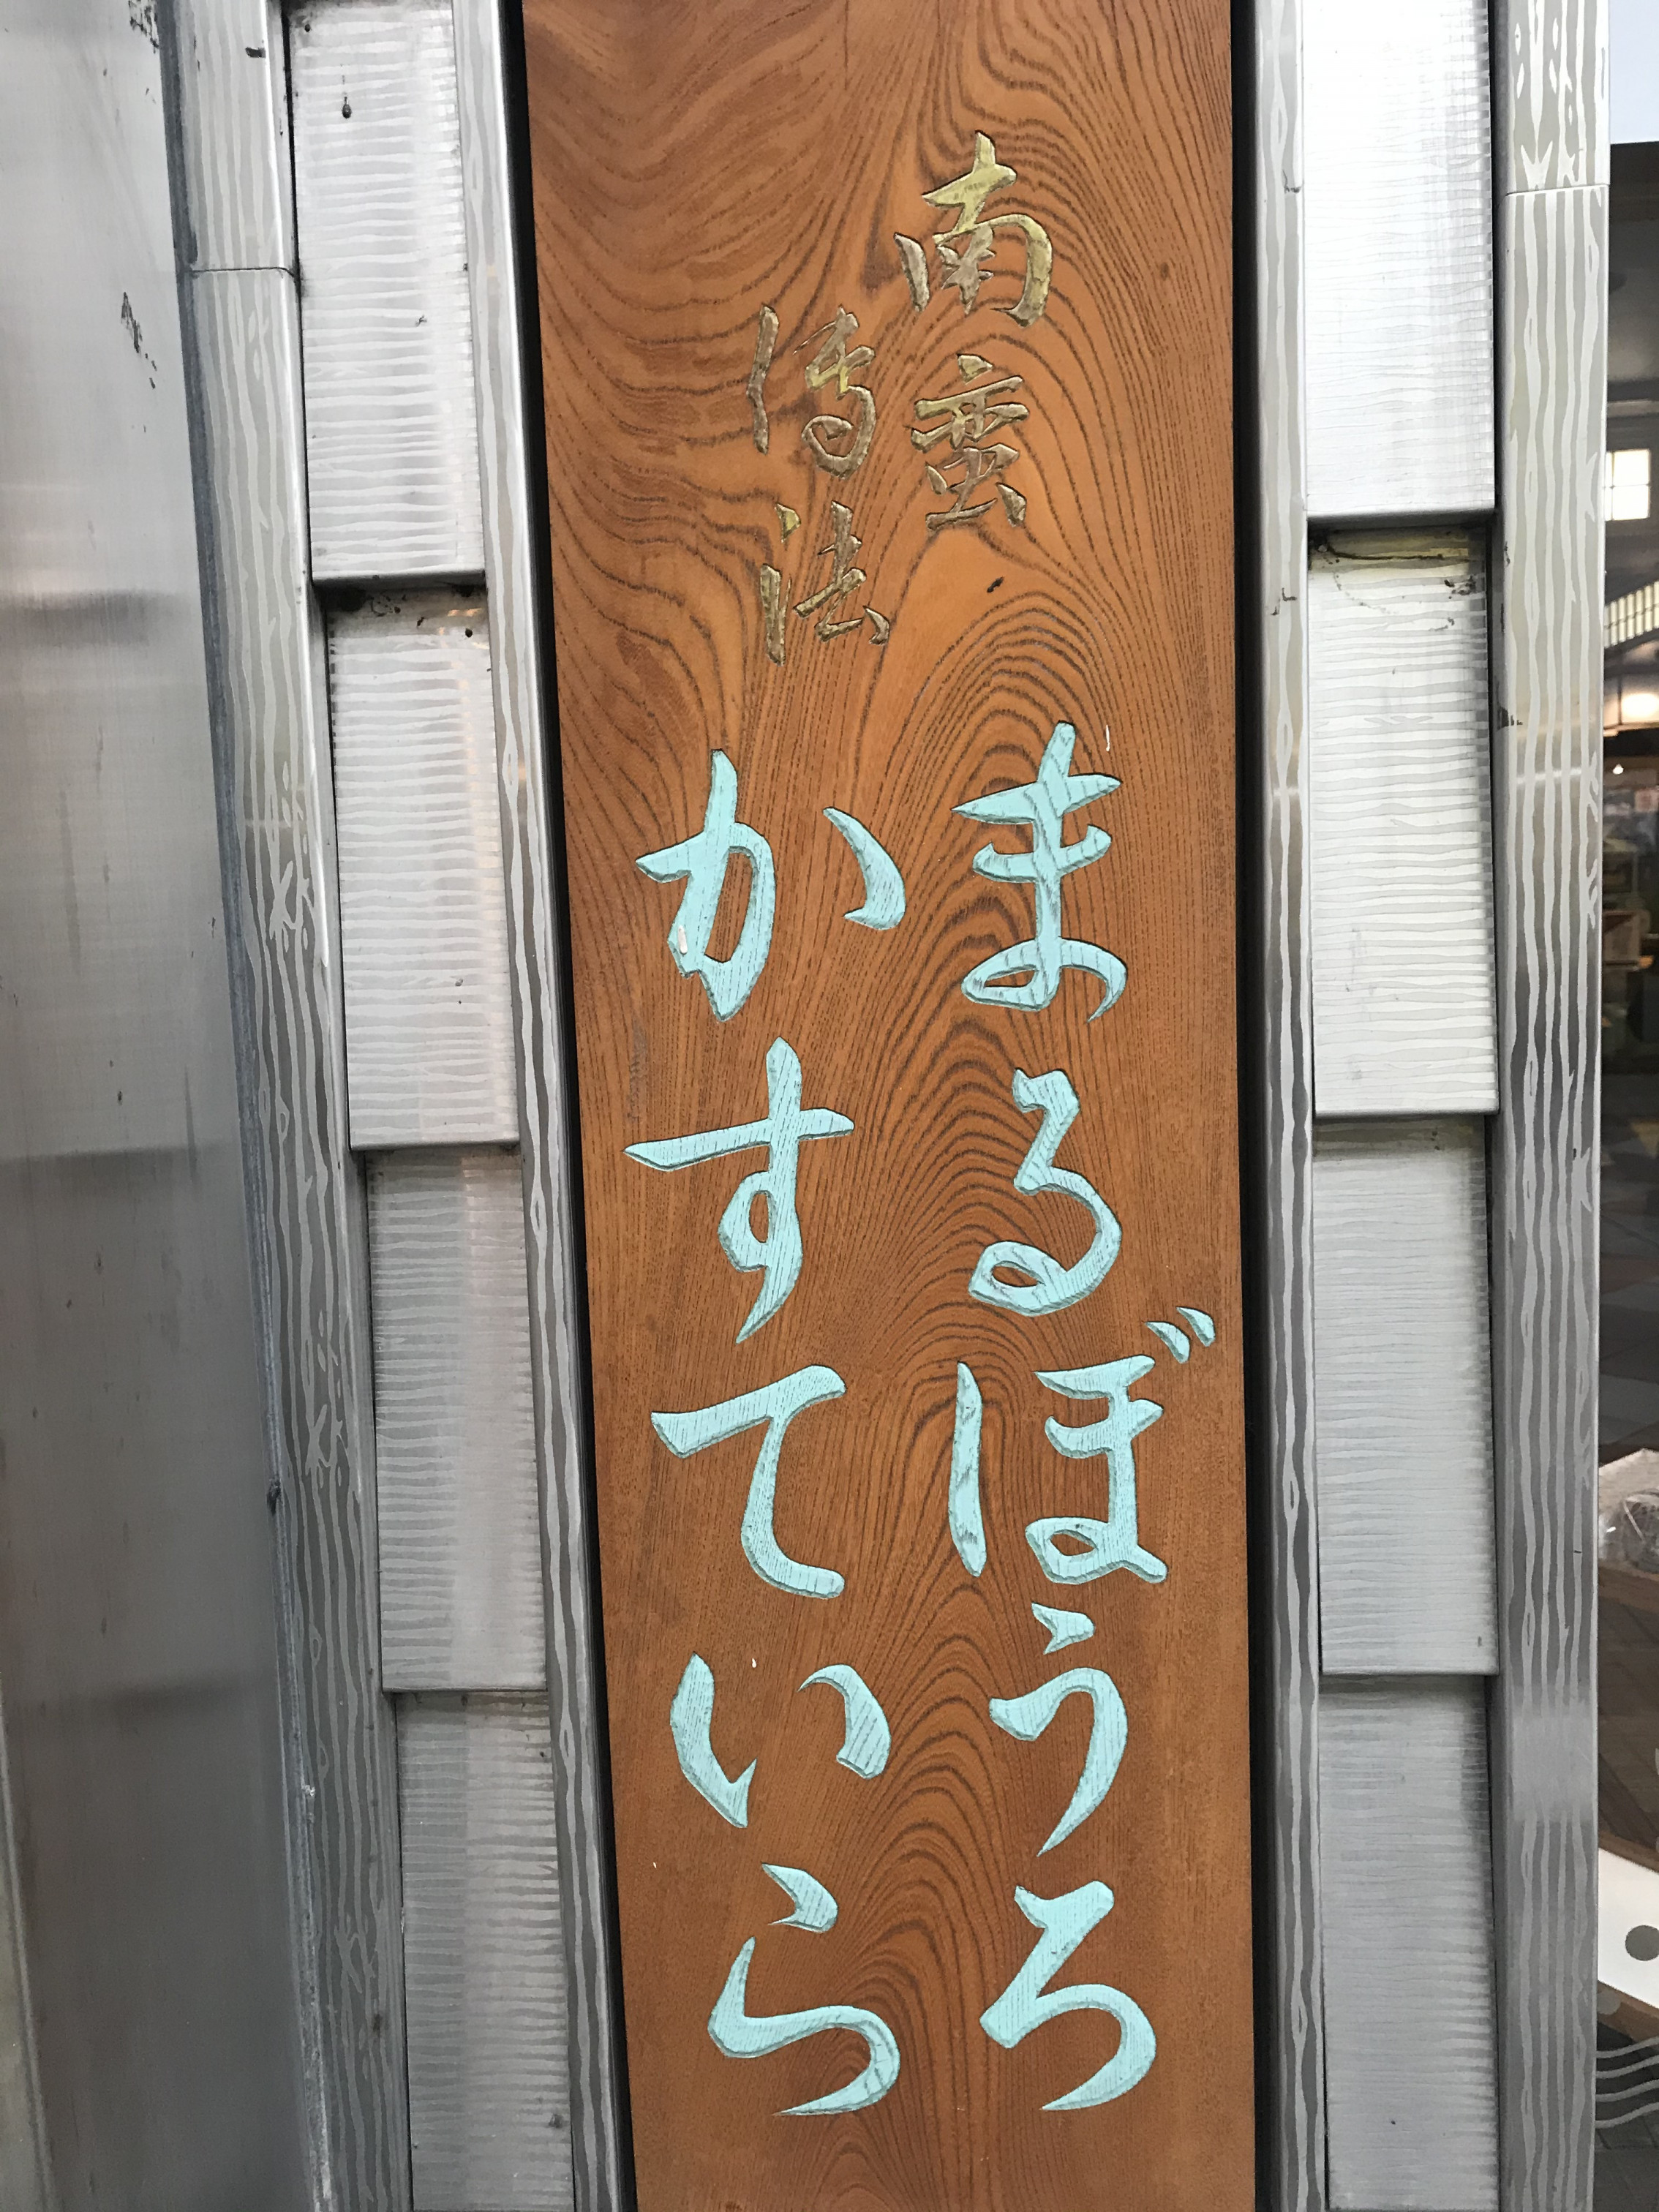 南蛮
傳法
まるぼうろ
かすていら